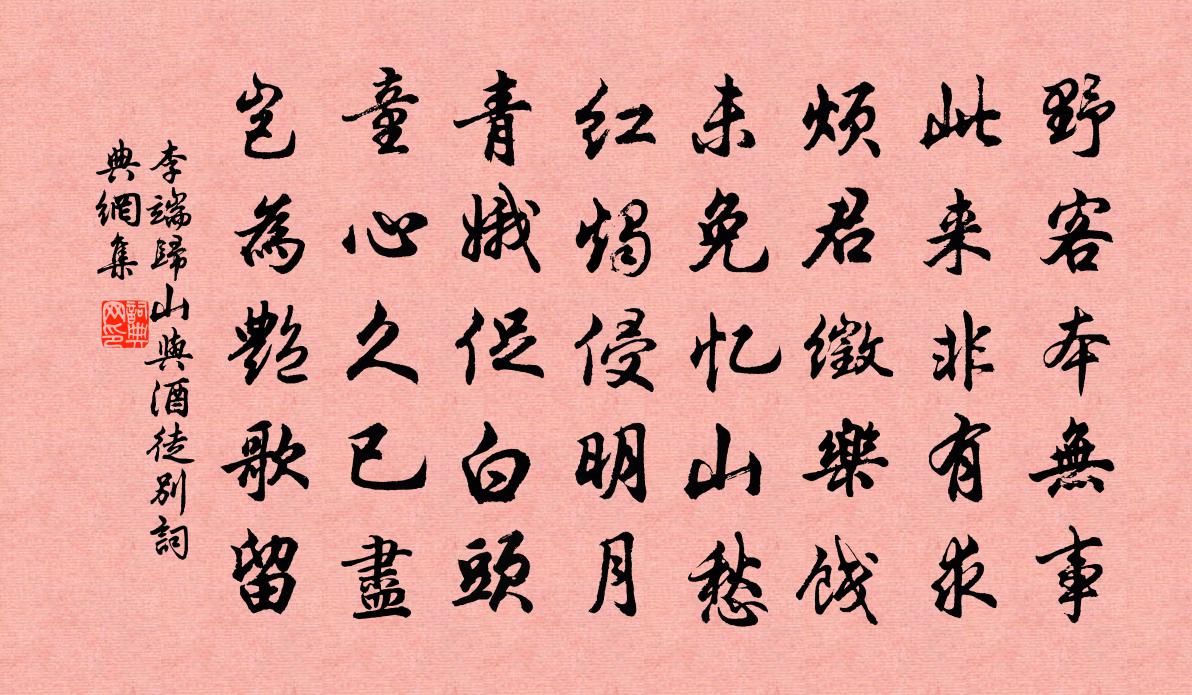 野客本無事
此来非有求
煩君徵樂餞
未免忆山愁
红燭侵明月
青娥促白頭
童心久已盡
豈為艷歌留
李端歸山與酒徒別詞
典網集
詞典網印